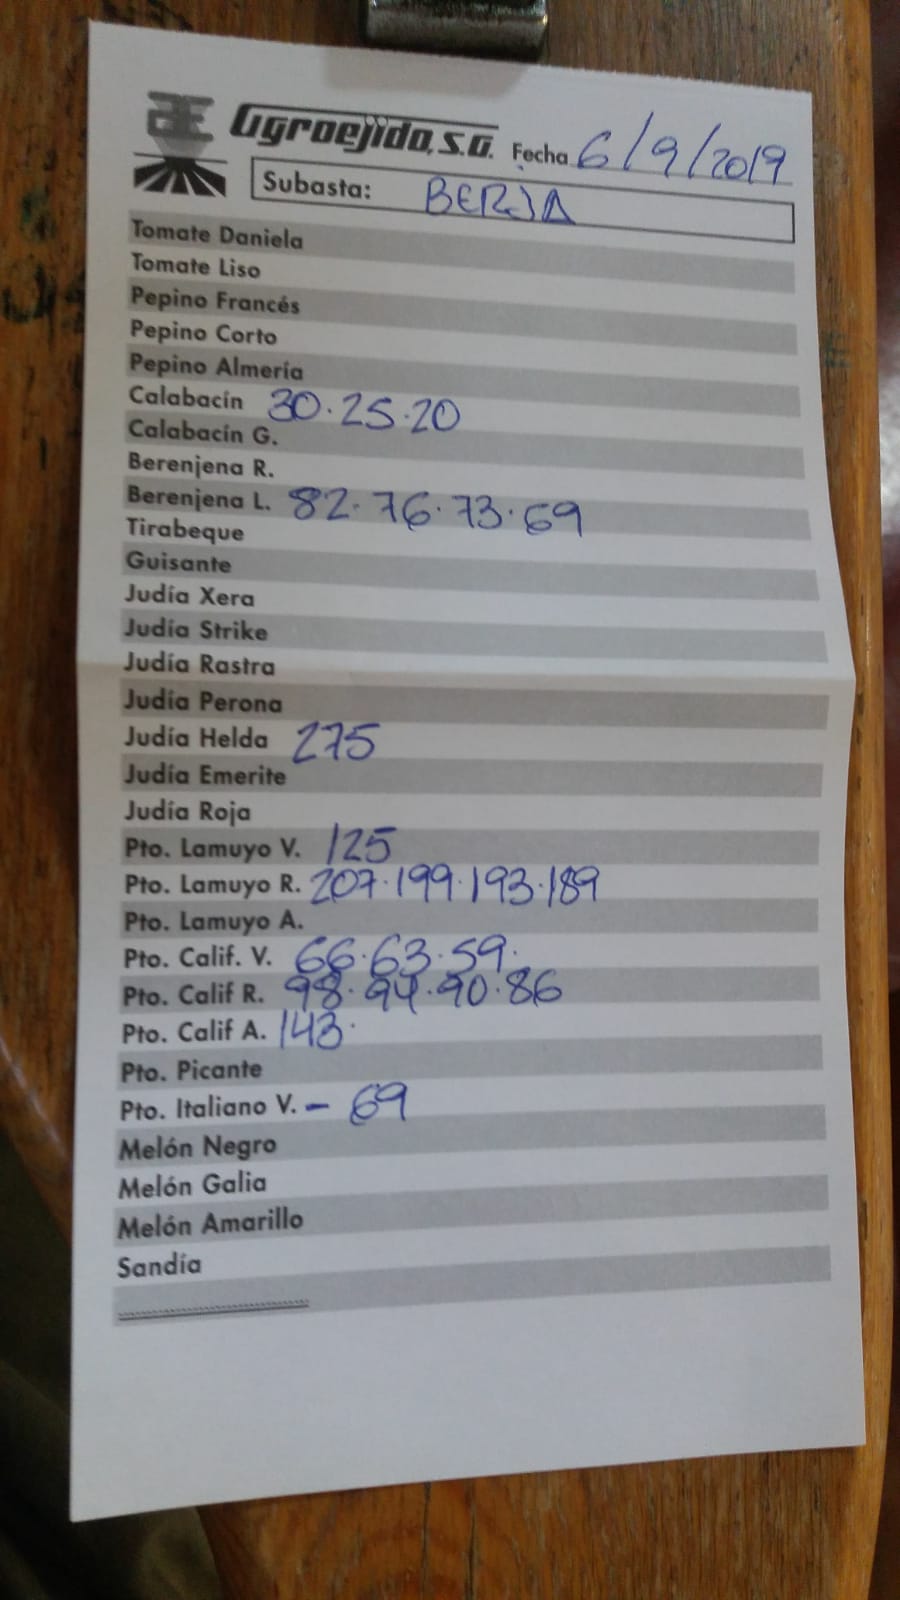 Agroejido, S.A. Fecha 6/9/2019
Subasta: BERJA
Tomate Daniela
Tomate Liso
Pepino Francés
Pepino Corto
Pepino Almería
Calabacín 30.25.20
Calabacín G.
Berenjena R.
Berenjena L. 82.76.73.69
Tirabeque
Guisante
Judía Xera
Judía Strike
Judía Rastra
Judía Perona
Judía Helda 275
Judía Emerite
Judía Roja
Pto. Lamuyo V. 125
Pto. Lamuyo R. 207.199.193.189
Pto. Lamuyo A.
Pto. Calif. V. 66.63.59.
Pto. Calif R. 98.94.90.86
Pto. Calif A. 143.
Pto. Picante
Pto. Italiano V. - 69
Melón Negro
Melón Galia
Melón Amarillo
Sandía